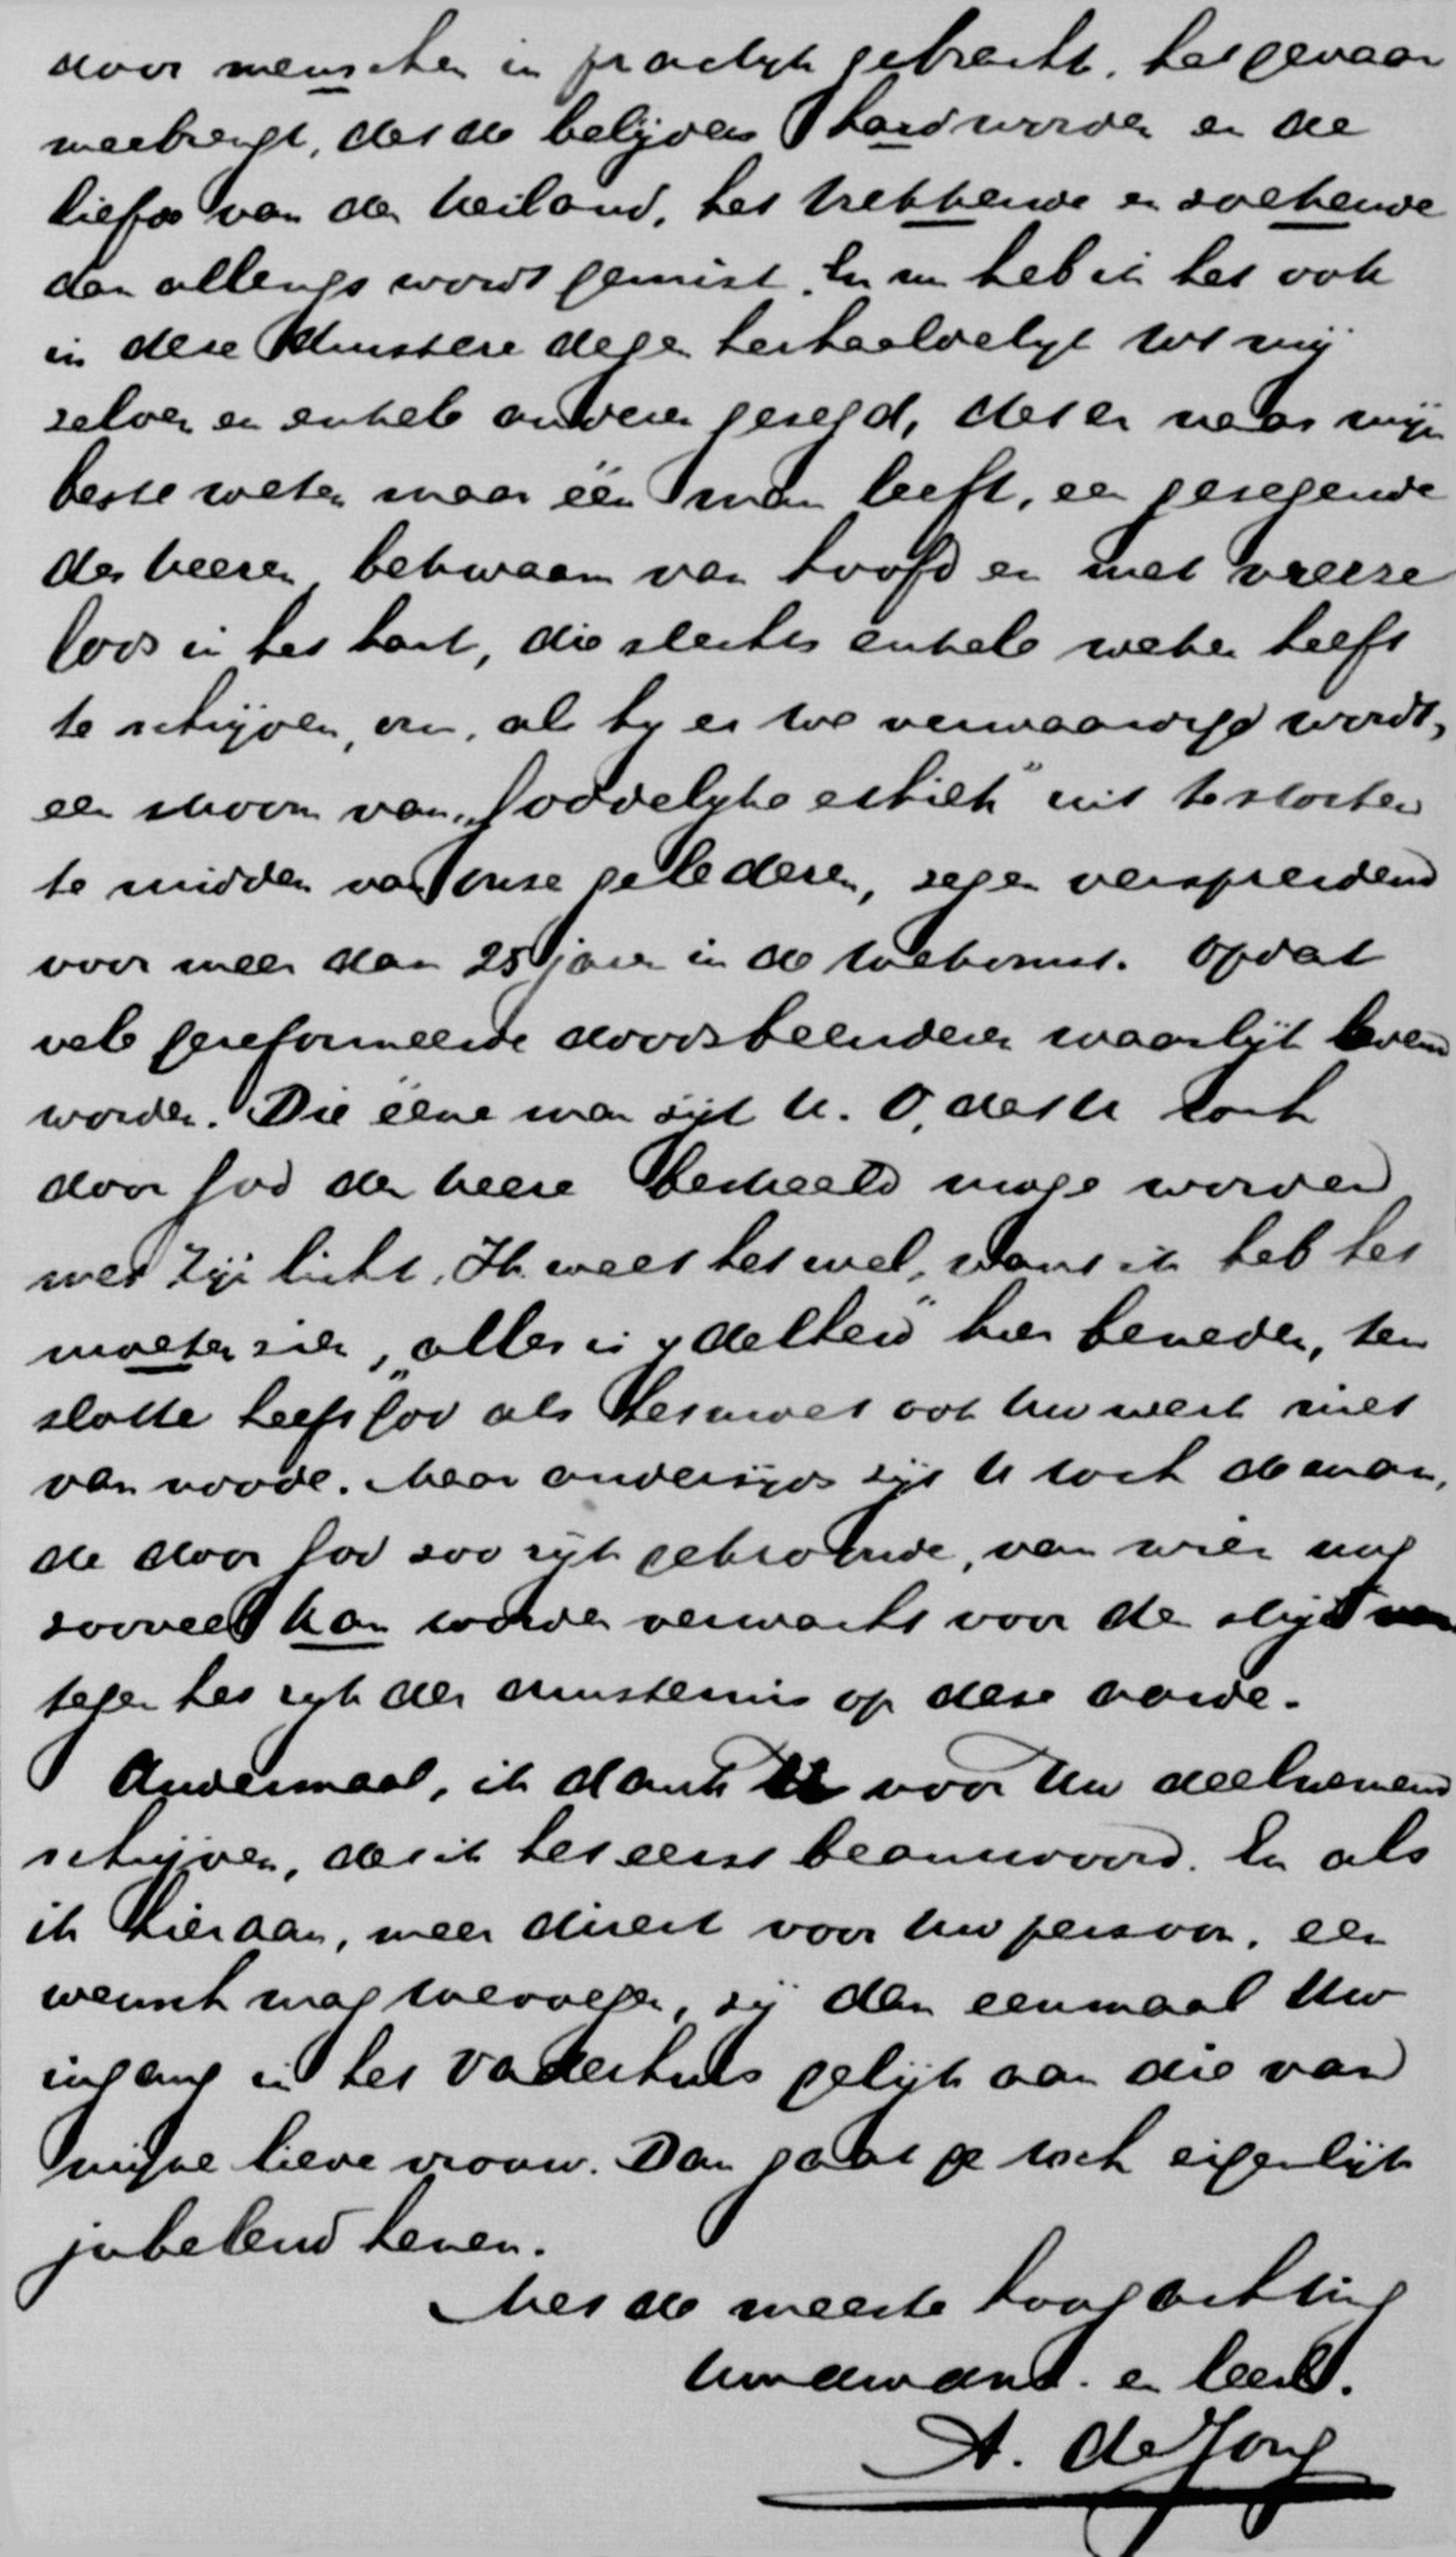 door menschen in practijk gebracht, het gevaar
meebrengt, dat de belijders hard worden en de
liefde van den Heiland, het trekkende en zoekende
dan allengs wordt gemist. En nu heb ik het ook
in deze duistere dagen herhaaldelijk tot mij
zelven en enkele anderen gezegd, dat er naar mijn
beste weten maar één man leeft, een gezegende
des Heeren, bekwaam van hoofd en met vreeze
Gods in het hart, die slechts enkele weken heeft
te schrijven, om, als hij er toe verwaardigd wordt,
een stroom van „Goddelijke ethiek" uit te storten
te midden van onze gelederen, zegen verspreidend
voor meer dan 25 jaar in de toekomst. Opdat
vele gereformeerde doodsbeenderen waarlijk levend
worden. Die ééne man zijt U. O, dat U toch
door God den Heere bestraald moge worden
met Zijn licht. Ik weet het wel, want ik heb het
moeten zien, „alles is ydelheid" hier beneden, ten
slotte heeft God als het moet ook Uw werk niet
van noode. Maar anderzijds zijt U toch de man,
de door God zoo rijk gekroonde, van wien nog
zooveel kan worden verwacht voor den strijd
tegen het rijk der duisternis op deze aarde.
Andermaal, ik dank U voor Uw deelnemend
schrijven, dat ik het eerst beantwoord. En als
ik hieraan, meer direct voor Uw persoon, een
wensch mag toevoegen, zij dan eenmaal Uw
ingang in het Vaderhuis gelijk aan die van
mijne lieve vrouw. Dan gaat ge toch eigenlijk
jubelend henen.
Met de meeste hoogachting
Uw dw. dnr. en leerl.
A. de Jong